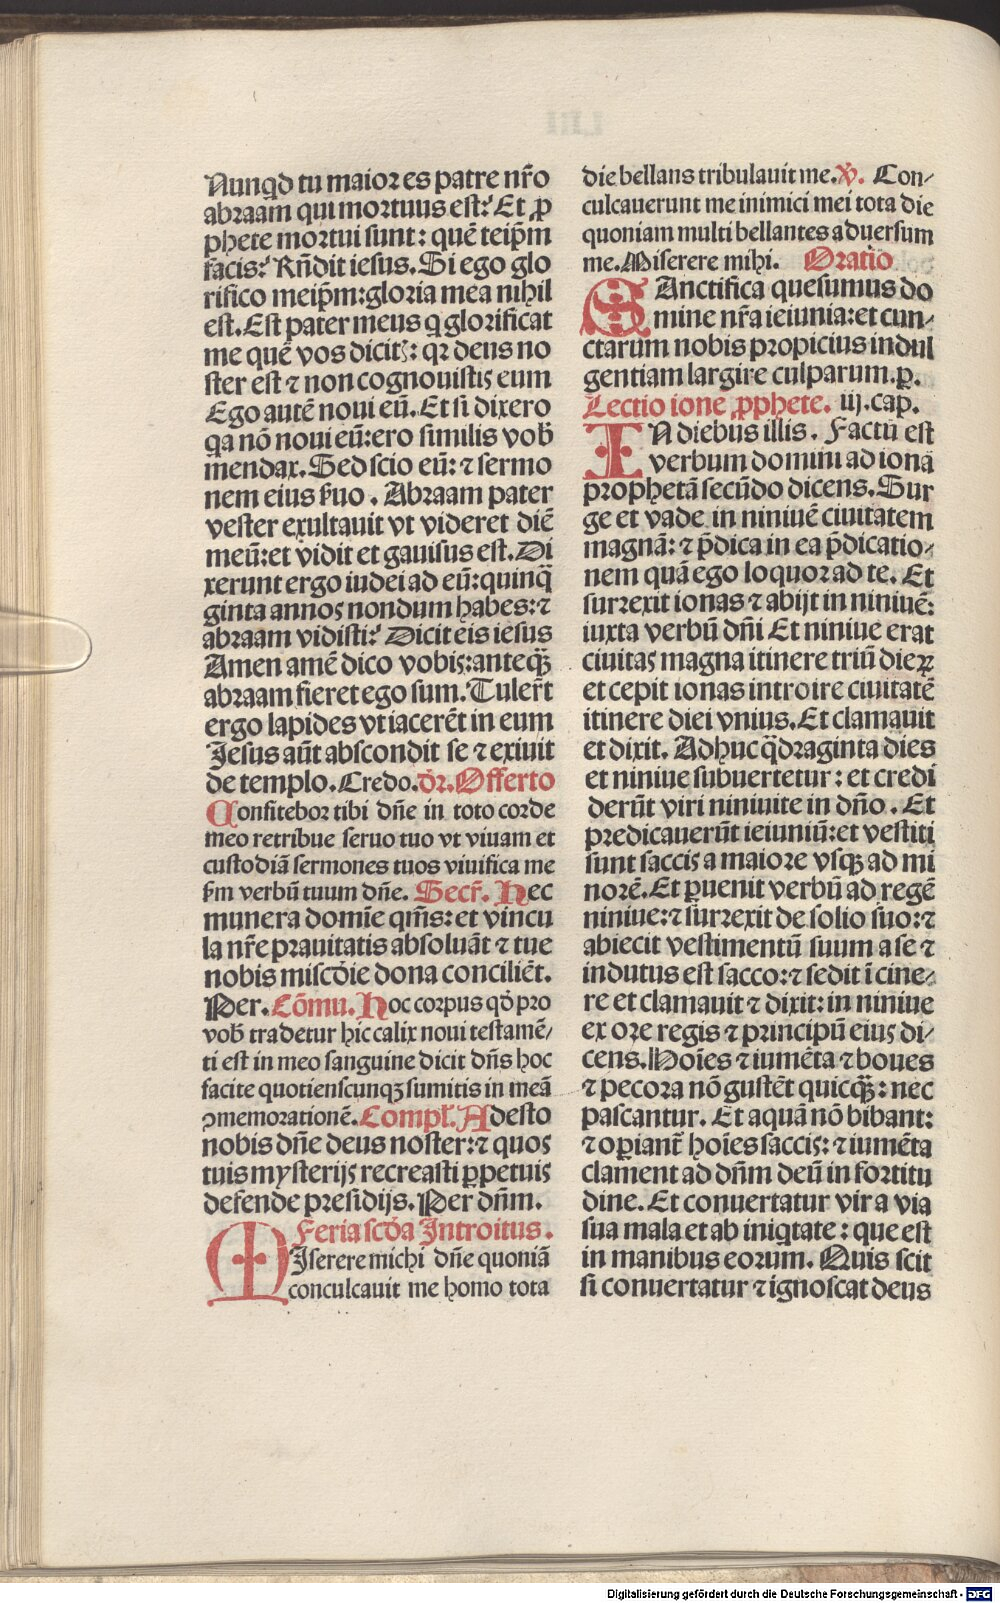 Nunqd tu maior es patre nr̄o
abraam qui mortuus est? Et ꝓ
phete mortui sunt: quē teip̄m
facis? Rn̄dit iesus. Si ego glo
rifico meip̄m: gloria mea nihil
est. Est pater meus q glorificat
me quē vos dicitꝭ: qꝛ deus no
ster est ⁊ non cognouistis eum
Ego autē noui eū. Et si dixero
qa nō noui eū: ero similis vob̄
mendax. Sed scio eū: ⁊ sermo
nem eius ẜuo. Abraam pater
vester exultauit vt videret diē
meū: et vidit et gauisus est. Di
xerunt ergo iudei ad eū: quinq̄
ginta annos nondum habes: ⁊
abraam vidisti? Dicit eis iesus
Amen amē dico vobis: anteq̄ꝫ
abraam fieret ego sum. Tuler̄t
ergo lapides vt iacerēt in eum
Jesus aūt abscondit se ⁊ exiuit
de templo. Credo. dr̄. Offerto
Confitebor tibi dn̄e in toto corde
meo retribue seruo tuo vt viuam et
custodiā sermones tuos viuifica me
ẜm verbū tuum dn̄e. Secr̄. Hec
munera domīe qm̄s: et vincu
la nr̄e prauitatis absoluāt ⁊ tue
nobis misc̄die dona conciliēt.
Per. Cōmu. Hoc corpus qd̄ pro
vob̄ tradetur hic calix noui testamē/
ti est in meo sanguine dicit dn̄s hoc
facite quotienscunqꝫ sumitis in meā
ꝯmemorationē. Compl̄. Adesto
nobis dn̄e deus noster: ⁊ quos
tuis mysterijs recreasti ꝑpetuis
defende presidijs. Per dn̄m.
Feria scd̄a Introitus.
MJserere michi dn̄e quoniā
conculcauit me homo tota
die bellans tribulauit me. ꝟ. Con/
culcauerunt me inimici mei tota die
quoniam multi bellantes aduersum
me. Miserere mihi. Oratio
SAnctifica quesumus do
mine nr̄a ieiunia: et cun/
ctarum nobis propicius indul
gentiam largire culparum. ꝑ.
Lectio ione ꝓphete. iij. cap.
IN diebus illis. Factū est
verbum domini ad ionā
prophetā secūdo dicens. Sur
ge et vade in niniuē ciuitatem
magnā: ⁊ p̄dica in ea p̄dicatio/
nem quā ego loquor ad te. Et
surrexit ionas ⁊ abijt in niniuē:
iuxta verbū dn̄i Et niniue erat
ciuitas magna itinere triū dieꝝ
et cepit ionas introire ciuitatē
itinere diei vnius. Et clamauit
et dixit. Adhuc q̄draginta dies
et niniue subuertetur: et credi
derūt viri niniuite in dn̄o. Et
predicauerūt ieiuniū: et vestiti
sunt saccis a maiore vsqꝫ ad mi
norē. Et ꝑuenit verbū ad regē
niniue: ⁊ surrexit de solio suo: ⁊
abiecit vestimentū suum a se ⁊
indutus est sacco: ⁊ sedit ī cine/
re et clamauit ⁊ dixit: in niniue
ex ore regis ⁊ principū eius di/
cens. Hoīes ⁊ iumēta ⁊ boues
⁊ pecora nō gustēt quicq̄ꝫ: nec
pascantur. Et aquā nō bibant:
⁊ oꝑiant̄ hoīes saccis: ⁊ iumēta
clament ad dn̄m deū in fortitu
dine. Et conuertatur vir a via
sua mala et ab iniqtate: que est
in manibus eorum. Quis scit
si conuertatur ⁊ ignoscat deus
Digitalisierung gefördert durch die Deutsche Forschungsgemeinschaft - DFG